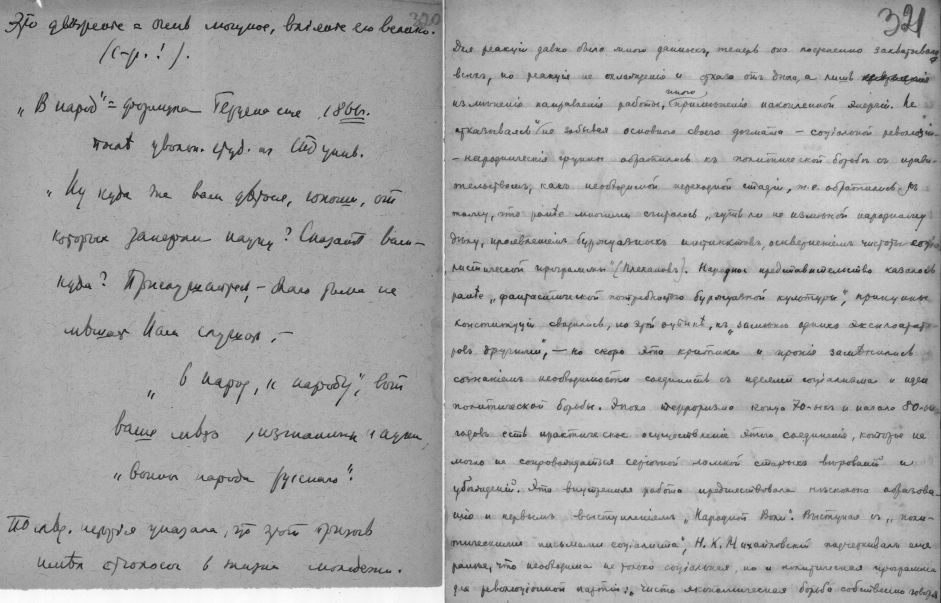 320
Это движение – очень мощное, влияние его велико.
(стр. !).
„В народ" = формула Герцена еще 1861г.
послѣ увольн. студ. из СПб унив.
„Ну куда же вам дѣться, юноши, от
которых заперли науку? Сказать вам –
куда? Прислушайтесь, –
„в народ, к народу", вот
ваше мѣсто, изгнанники науки,
„воины народа русского".
что этот призыв
имѣл отголосок в жизни молодежи.
321
Для реакции давно было много данных, теперь она постепенно захватывала
всех, но реакция не охлаждения и отказа отъ дѣла, а лишь
измѣнения направления работы, иного примѣнения накопленной энергии. Не
отказываясь и не забывая основного своего догмата – социальной революции
– народническия группы обратились къ политической борьбѣ съ прави-
тельством, какъ необходимой переходной стадии, т.е. обратились къ
тому, что ранѣе многими считалось „чуть ли не измѣной народному
дѣлу, проявлением буржуазных инстинктов, осквернением чистоты социа-
листической программы" (Плеханов). Народное представительство казалось
ранѣе „фантастической потребностью буржуазной культуры",
конституции сводились, къ „замѣнѣ одних эксплоатато-
ров другими", – но скоро эта критика и ирония замѣнились
сознанием необходимости соединить съ идеями социализма и идеи
политической борьбы. Эпоха терроризма конца 70-ых и начала 80-ых
годов есть практическое осуществление этого соединения, которое не
могло не сопровождаться серьезной ломкой старых вѣрований и
убѣждений. Эта внутренняя работа предшествовала нѣсколько образова-
нию и первым выступлением „Народной Воли". Выступая съ „поли-
тическими письмами социалиста", Н. К. Михайловский подчеркивал еще
раньше, что необходима не только социальная, но и политическая программа
для революционной партии: „чисто экономическая борьба собственно говоря